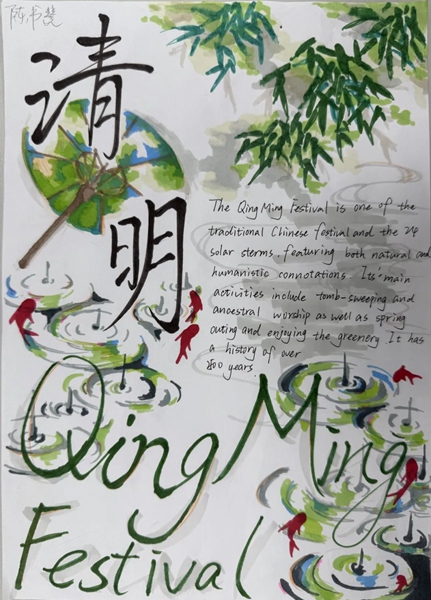 清
明
The Qing Ming Festival is one of the
traditional Chinese festival and the 24
solar sterms. featuring both natural and
humanistic connotations. Its' main
activities include tomb-sweeping and
ancestral worship as well as spring
outing and enjoying the greenery. It has
a history of over
800 years
Qing Ming
Festival